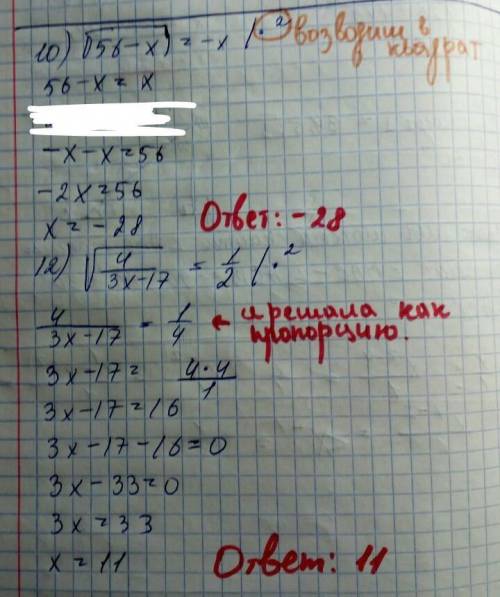 10) √(56-x) = -x |·² возводим в
квадрат
56-x = x
-x-x=56
-2x=56
x= -28 Ответ: -28
12) √(4/(3x-17)) = 1/2 |·²
4/(3x-17) = 1/4 ← я решала как
пропорцию.
3x-17= (4·4)/1
3x-17=16
3x-17-16=0
3x-33=0
3x=33
x=11 Ответ: 11